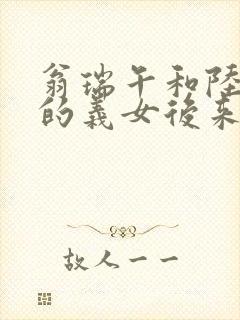 翁瑞午和陸
的義女後來
故人一一